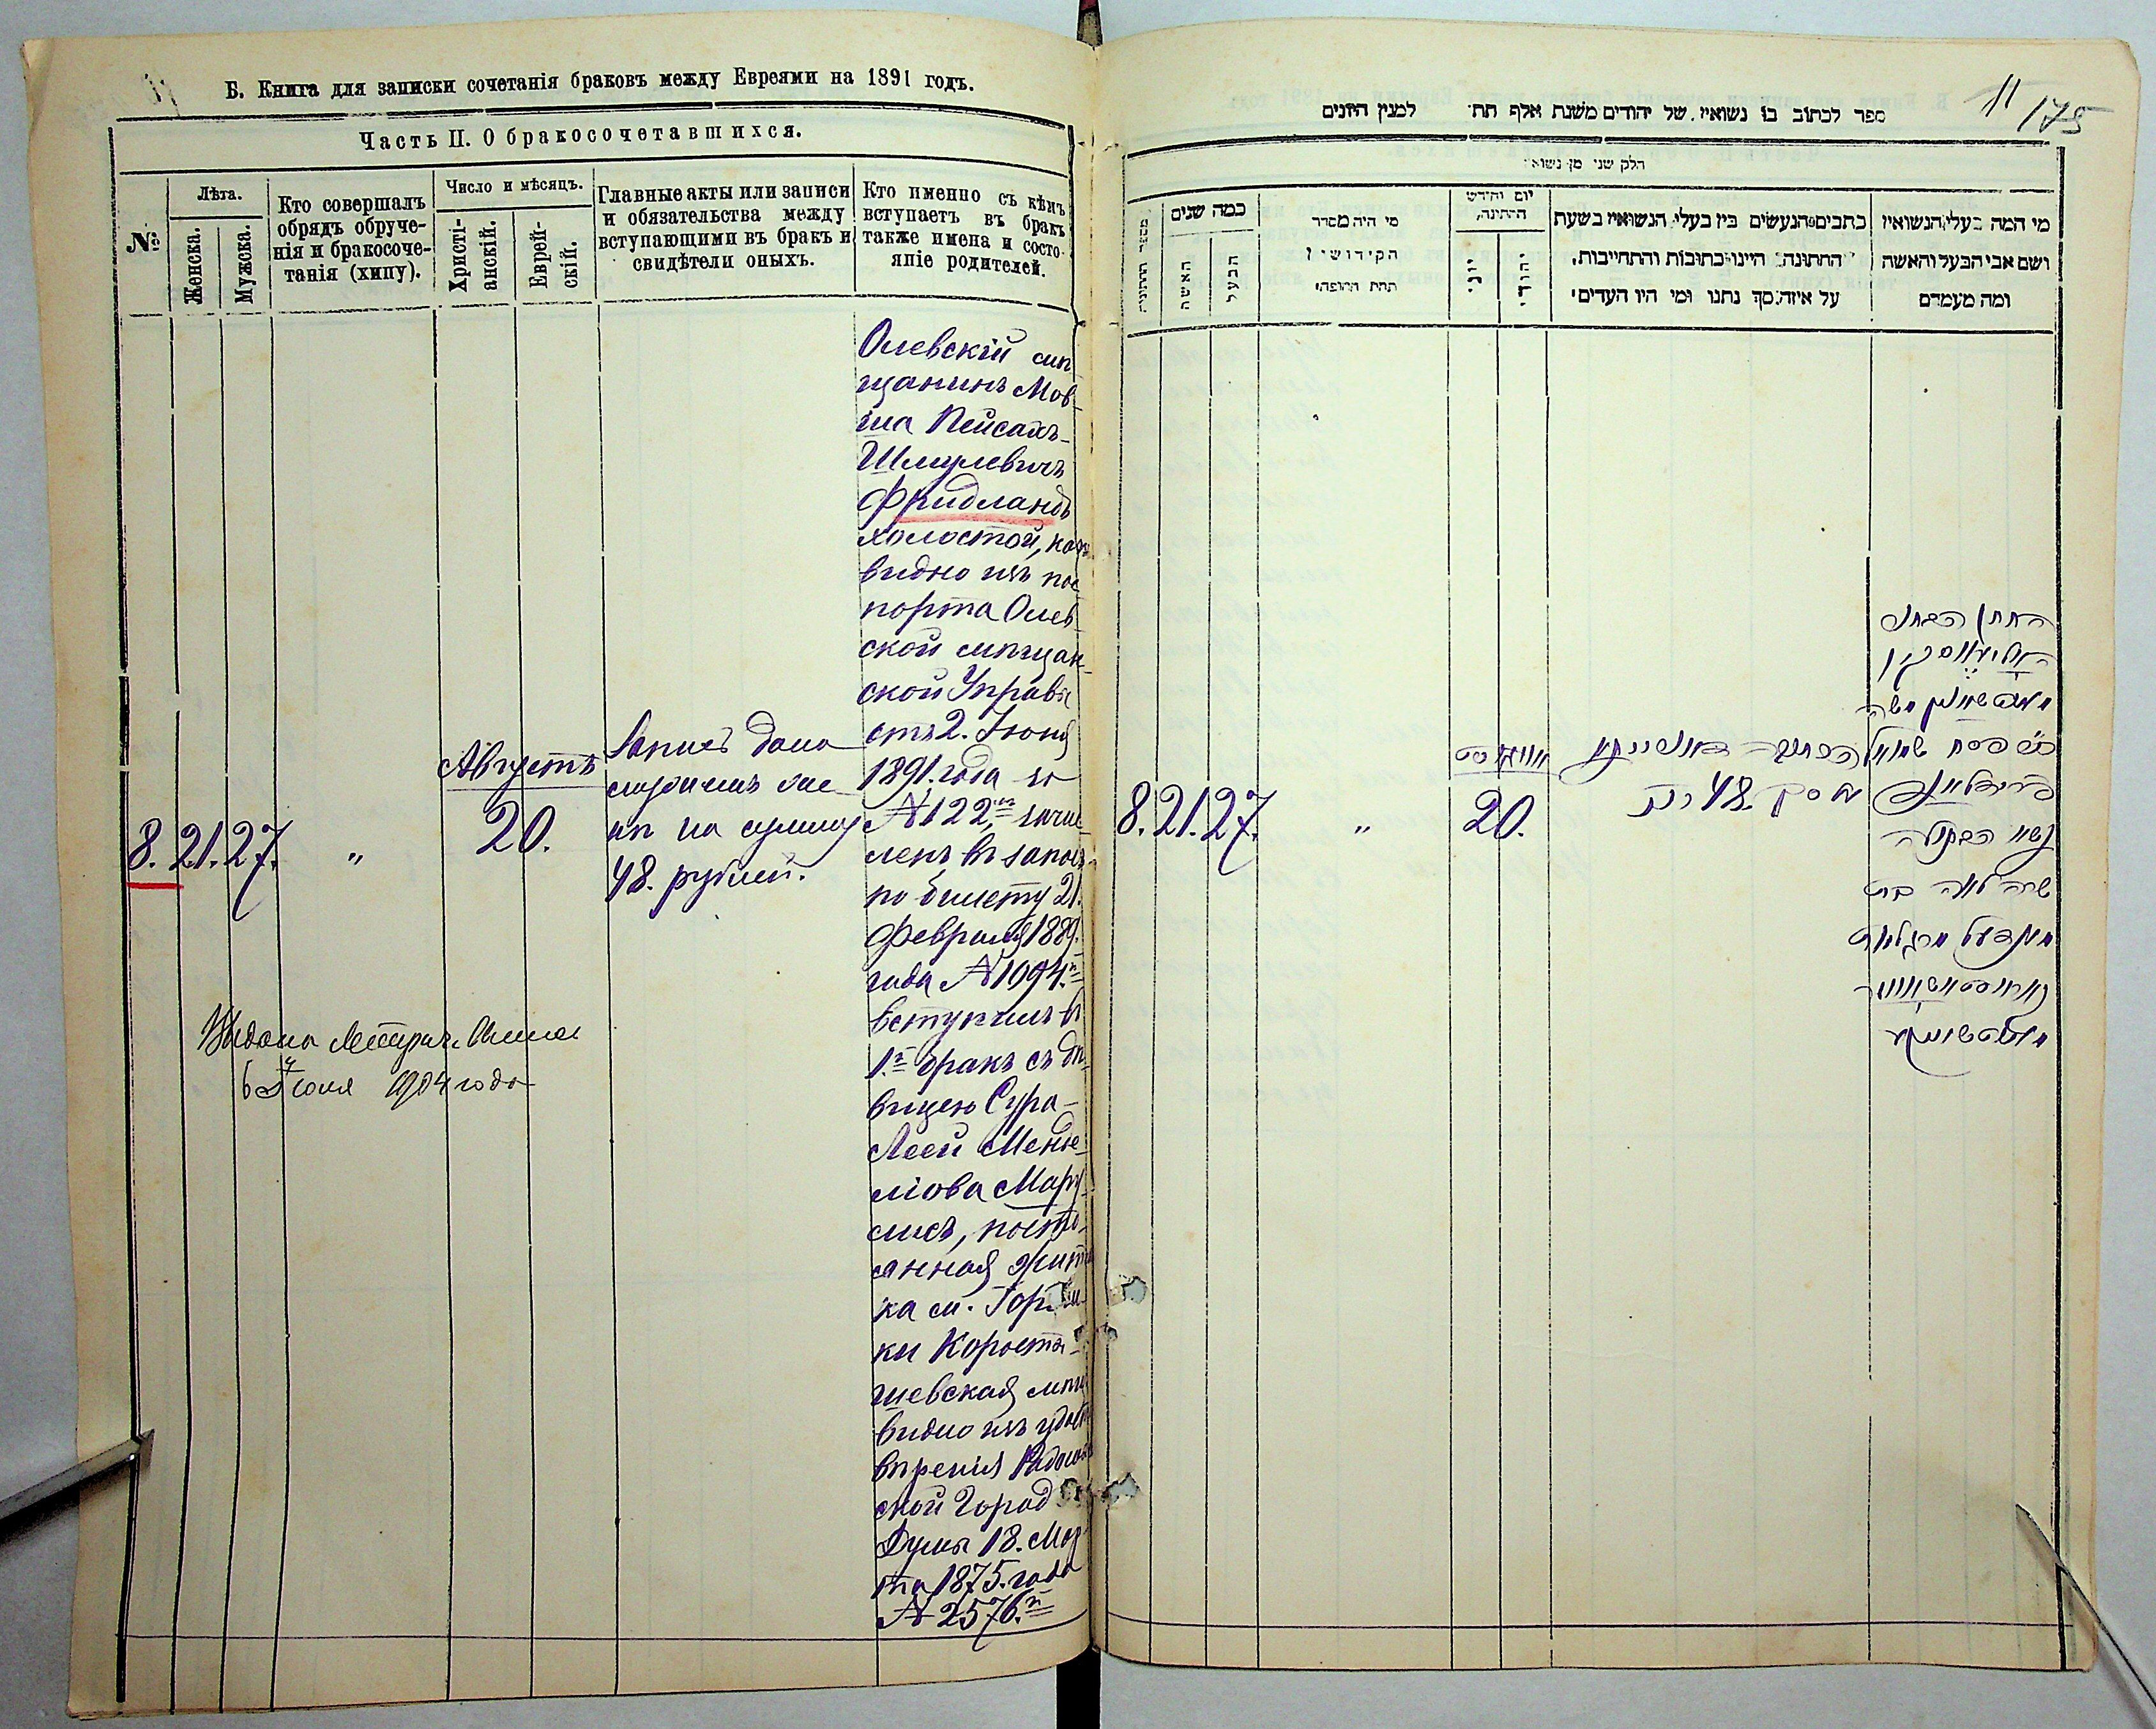 Б. Книга для записки сочетанія браковъ между Евреями на 1891 годъ.
Часть II. О бракосочетавшихся.
№
Лѣта.
Женска.
Мужска.
Кто совершалъ
обрядъ обруче-
нія и бракосоче-
танія (хипу).
Число и мѣсяцъ.
Христі-
анскій.
Еврей-
скій.
Главные акты или записи
и обязательства между
вступающими въ бракъ и
свидѣтели оныхъ.
Кто именно съ кѣмъ
вступаетъ въ бракъ
также имена и состо-
яніе родителей.
8. 21. 27. "
Августъ
20.
Запись дана
на сумму
48. рублей.
Олевскій мѣ
щанинъ Мов-
ша Пейсахъ-
Шмулевичъ
Фридландъ
холостой, какъ
видно изъ пас
порта Олев-
ской мѣщан-
ской Управы
отъ 2. Іюня
1891. года за
№ 122,
въ запасъ
по билету 21.
Февраля 1889.
года № 1994.
вступилъ въ
1.й бракъ съ дѣ
вицею Сура-
Леей Менде-
ліова Маргу
лисъ, посто-
янная жите
ка м.
ки Коросты-
шевская мѣщ
видно изъ удосто
вѣренія Радомысль
ской Город
Думы 18. Мар
та 1875. года
№ 2576.
Выдана
6 Іюля 1904 года
11
175
ספר לכתוב בו נשואין של יהודים משנת אלף תת למנין היונים
חלק שני מן נשואי
מספר החתונות
כמה שנים
האשה
הבעל
מי היה מסדר
הקידושין
תחת החופה
יום וחודש
החתונה
יוני
יהודי
כתבים הנעשים בין בעלי הנשואין בשעת
החתונה היינו כתובות והתחייבות,
על איזה סך נתנו ומי היו העדים
מי המה בעלי הנשואין
ושם אבי הבעל והאשה
ומה מעמדם
8. 21. 27. "
אווגוסט
20.
סך 48
החתן הבחור
משה
פסח שמואל
פרידלאנד
נשא הבתולה
שרה לאה בת
מענדעל מרגליות